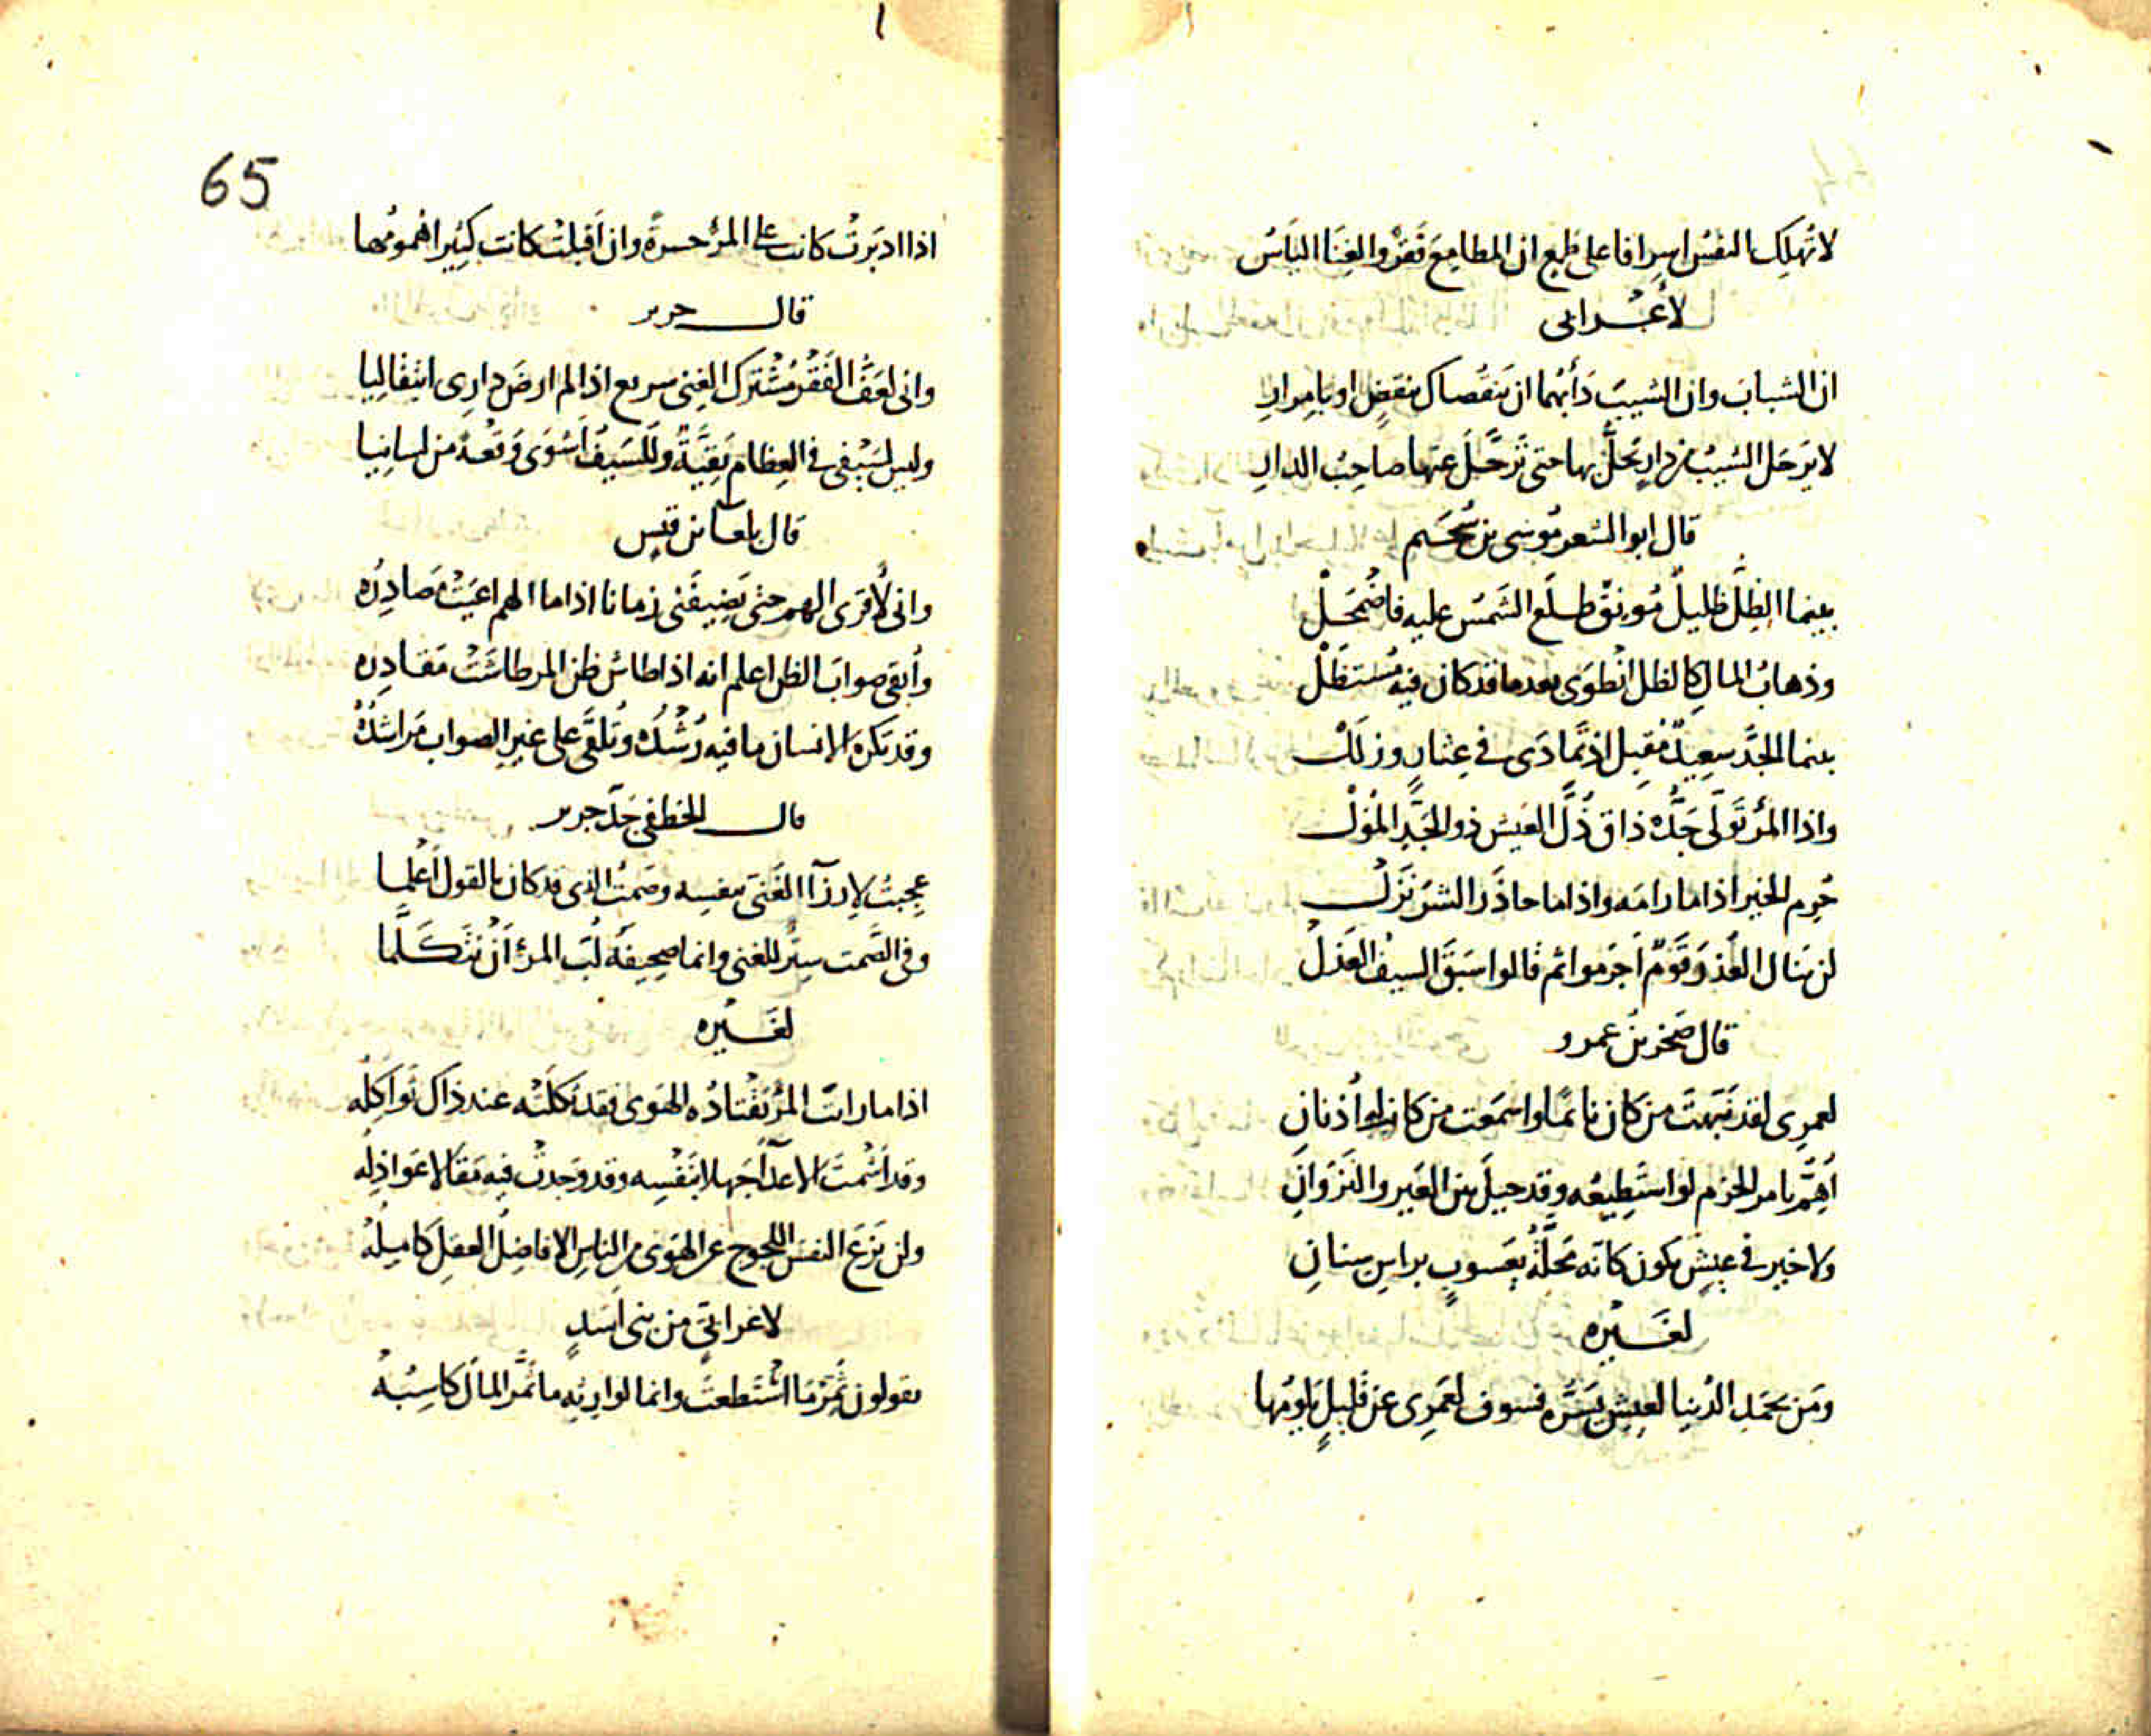 لا تُهلِك النفسُ اسرافا على طمع ان المطامِعَ فَقرٌ والغِنَا اليَاسُ
لأعْرابى
ان الشبابَ وان الشيبَ دَأبُهما ان يَنقُصاك بنقضٍ او بامرارِ
لا يَرحَل الشيبُ من دارٍ يَحلُّ بها حتى تَرَحَّلَ عنها صاحِبُ الدارِ
قال ابو الشعر مُوسَى بن سُحَيم
بينما الظِلُّ ظليلٌ مُونِقٌ طلَع الشَمسُ عليه فاضْمَحَلْ
وذهابُ المالِ كالظل انْطَوَى بعد ما قد كان فيه مُستَظَلْ
بينما الجَدُّ سعِيدٌ مُقبِل اذ تَمادَى فى عِثارٍ وزَلَلْ
واذا المرُء تَولَّى جَدُّه ذاق ذُلَّ العَيش ذو الجَدِّ المُوَلْ
حُرِم الخيرَ اذا ما رامَه واذا ما حاذَر الشرَ نَزَلْ
لن ينال العُذرَ قَومٌ اَجرَموا ثم قالوا سَبَق السيفُ العَذلْ
قال صَخر بن عمرو
لعمرِى لقد نَبّهتَ من كان نائمًا واسمَعت من كان له اُذنانِ
اَهُمُّ بامر الحزمِ لو استَطِيعُه وقد حيلَ بين العَير والنَزَوانِ
ولا خير فى عيشٍ يكون كانه مَحَلّةُ يعسوبٍ براس سِنانِ
لغَيره
ومَن يحمَد الدُنيا لعيشٍ يَسُرّه فسوف لعَمرِى عن قليلٍ يَلومُها
65
اذا ادبَرتْ كانت على المرُء حسرةً وان اَقبلتْ كانت كثيرا هُمومُها
قال جرير
وانى لعَفُّ الفَقْرِ مُشْتَرَك الغِنى سريع اذا لم ارضَ دارِى انتِقالِيا
وليس لسَيْفى فى العِظام بَقِيّةٌ ولَلسَيفُ اَشوَى وَقعَةً من لسانِيا
قال بلعا بن قيس
وانى لأقرى الهم حتى يَضِيفَنى زمانا اذا ما الهم اعيَتْ مَصادِرُه
وأبغى صوابَ الظن اعلم انه اذا طاش ظن المرء طاشَتْ مَقادِرُه
وقد يَكرَه الانسان ما فيه رُشْدُه وتُلقَى على غيرِ الصوابِ مَراشدُهْ
قال الخطفى جَدّ جرير
عجِبتُ لازرآ الغَنِىّ بنفسِه وصَمتُ الذى قد كان بالقول اَعْلما
وفى الصَّمت سِترٌ للغنى وانما صحِيفَةُ لُبّ المرُء اَنْ يَتَكَلَّما
لغَيره
اذا ما رايتَ المرَء يَقْتادُه الهَوى فقد ثكلَتْه عند ذاك ثَواكِلُه
وقد اَشْمتَ الاعدآ جَهلا بنَفْسِه وقد وَجدتْ فيه مَقالا عَواذِلُه
ولن يَزَعَ النفسَ اللجوج عن الهَوى من الناسِ الا فاضِلُ العقلِ كامِلُهْ
لاعرابىّ من بنى اَسَدٍ
يقولون ثَمِّر ما اسْتَطعتَ وانما لوارِثِه ما ثَمَّر المالَ كاسِبُهْ